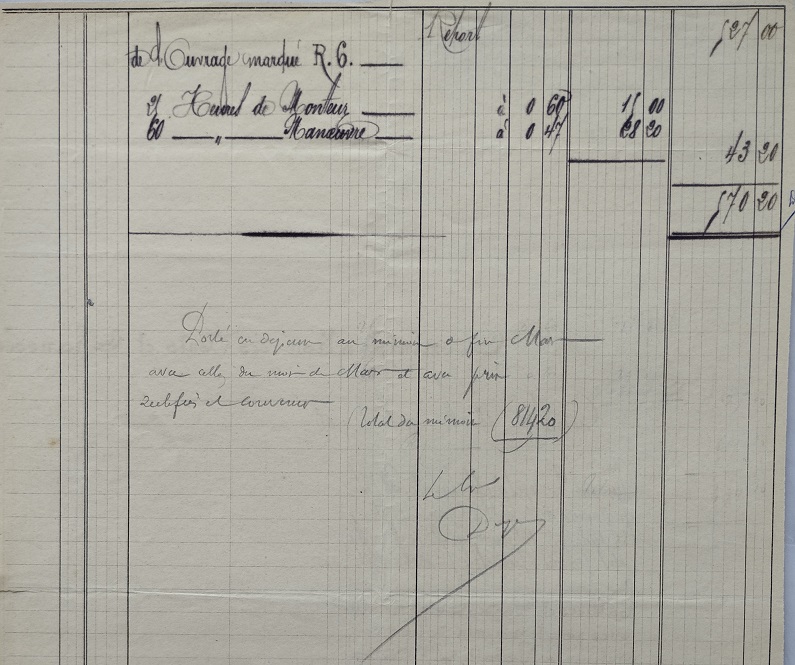 Report 527 00
de d'Ouvrage marqué R. G.
25 Heures de Monteur à 0 60 15 00
60 — " — Manœuvre à 0 47 28 20
43 20
570 20
Porté en au mémoire à fin Mars
avec celles du mois de Mars et avec prix
rectifiés et convenus
(Total du mémoire (814,20)
Le